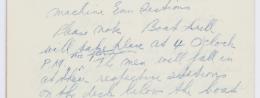 machine Gun Sections
Please note Boat drill
will take place at 4 O'clock
P.M. The men will fall in
at their respective stations
on the deck below the boat